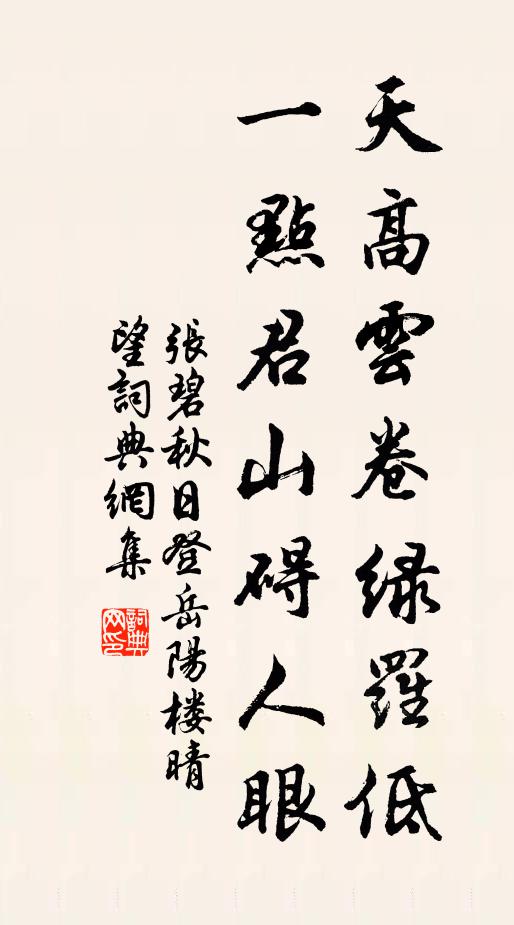 天高雲卷綠羅低
一點君山碍人眼
張碧秋日登岳陽楼晴
望詞典網集
詞典
网印